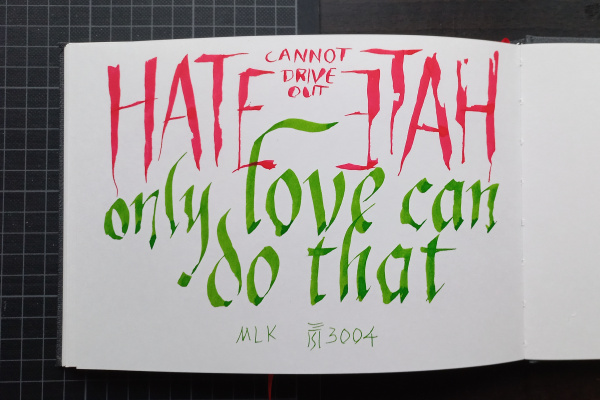 HATE
CANNOT
DRIVE
OUT
HATE
only love can
do that
MLK 3004